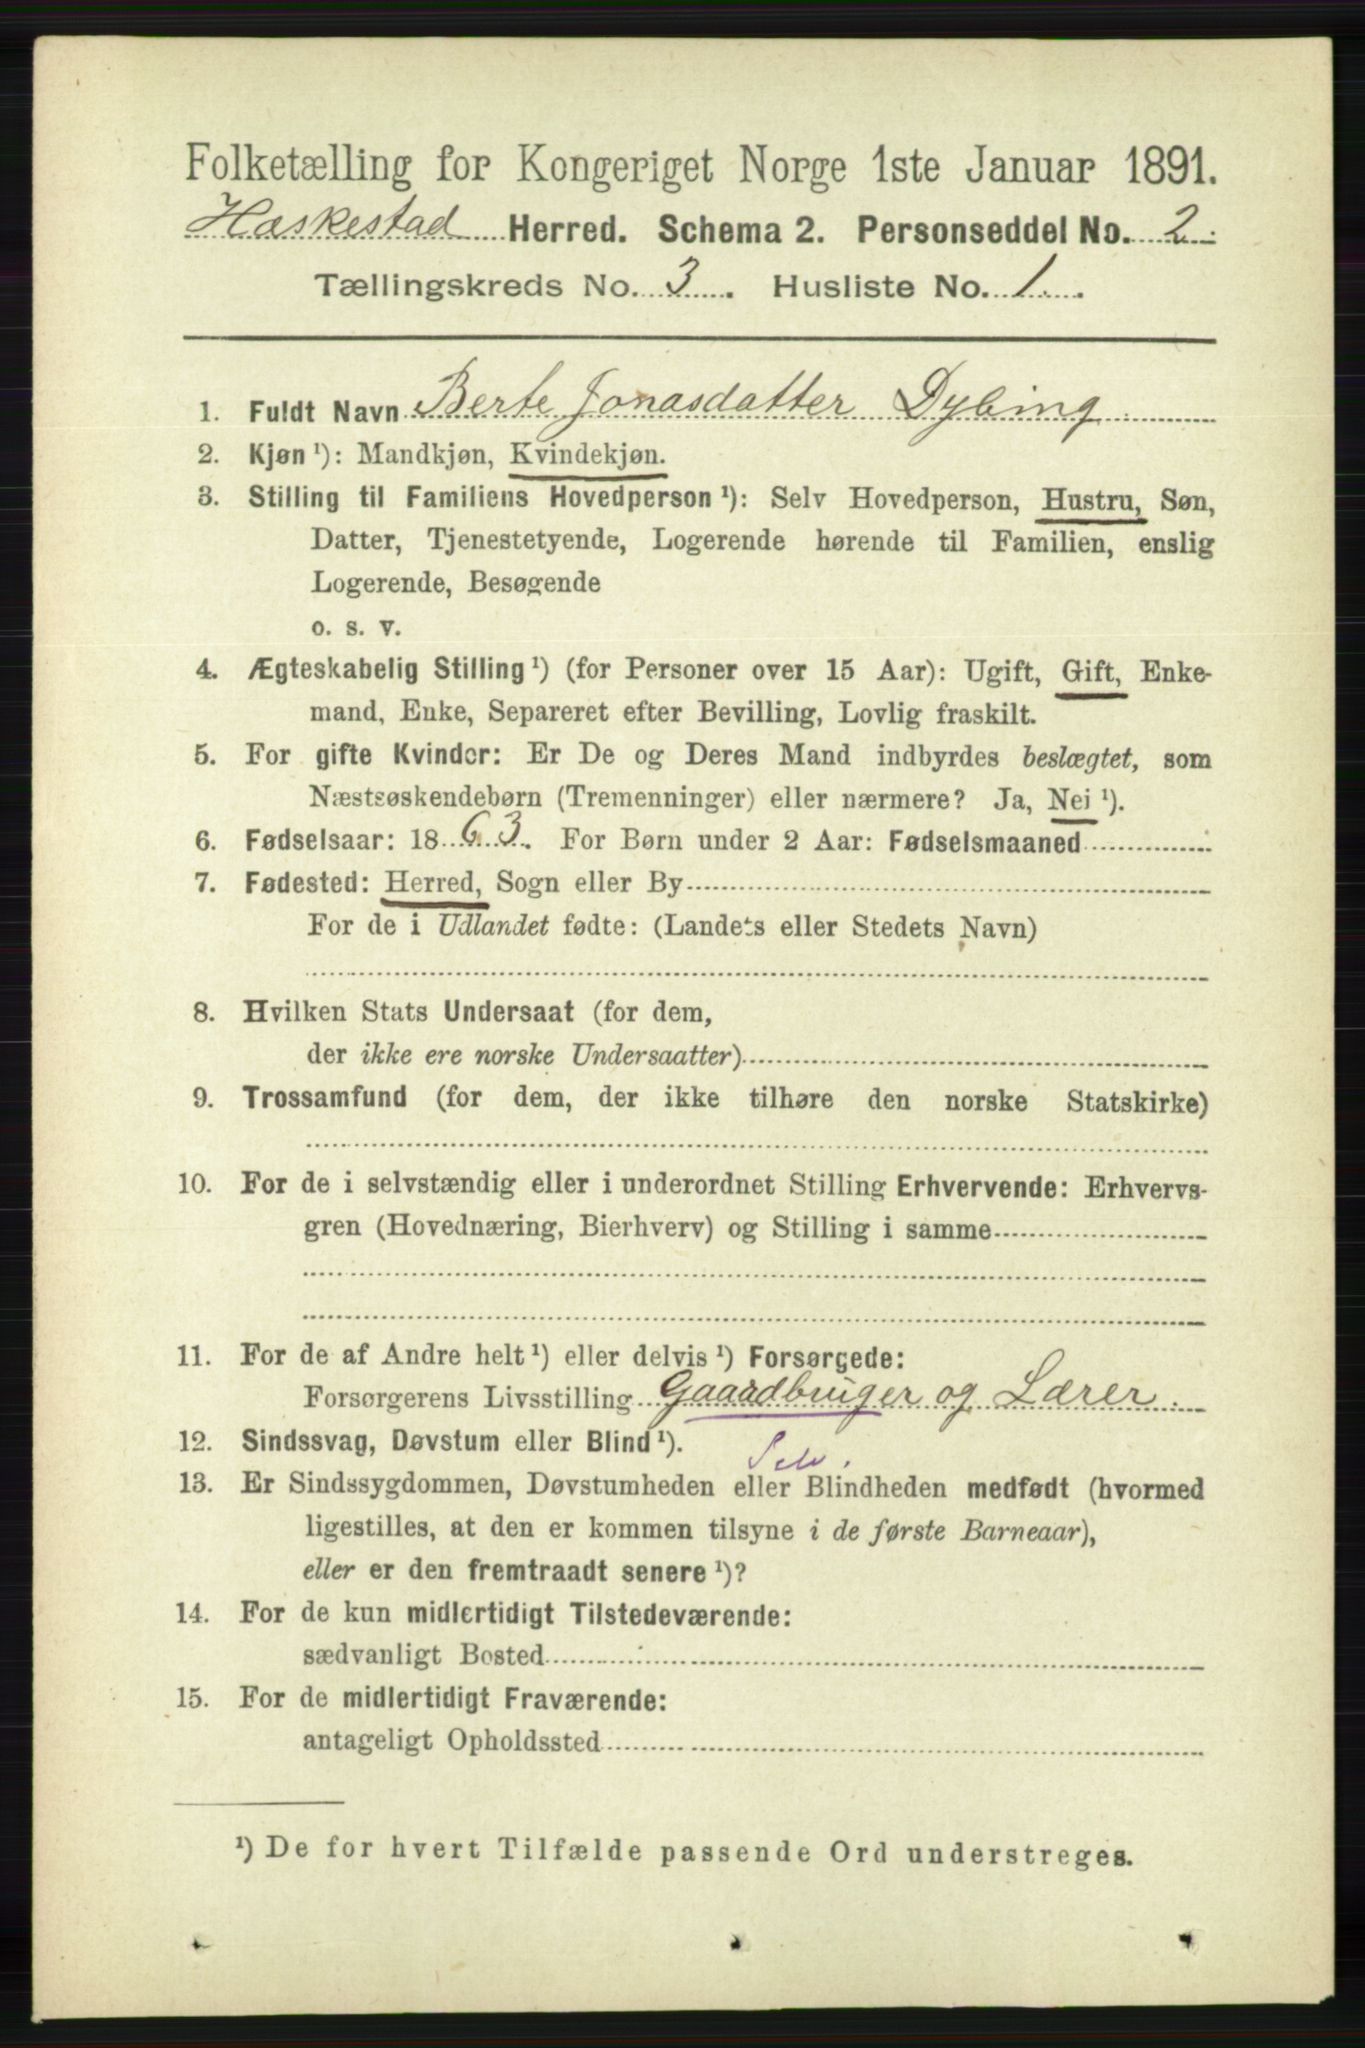 Folketælling for Kongeriget Norge 1ste Januar 1891.
Hæskestad Herred. Schema 2. Personseddel No. 2.
Tællingskreds No. 3. Husliste No. 1.
1. Fuldt Navn Berte Jonasdatter Dybing
2. Kjøn ¹): Mandkjøn, Kvindekjøn.
3. Stilling til Familiens Hovedperson ¹): Selv Hovedperson, Hustru, Søn,
Datter, Tjenestetyende, Logerende hørende til Familien, enslig
Logerende, Besøgende
o. s. v.
4. Ægteskabelig Stilling ¹) (for Personer over 15 Aar): Ugift, Gift, Enke-
mand, Enke, Separeret efter Bevilling, Lovlig fraskilt.
5. For gifte Kvinder: Er De og Deres Mand indbyrdes beslægtet, som
Næstsøskendebørn (Tremenninger) eller nærmere? Ja, Nei ¹).
6. Fødselsaar: 1863. For Børn under 2 Aar: Fødselsmaaned
7. Fødested: Herred, Sogn eller By
For de i Udlandet fødte: (Landets eller Stedets Navn)
8. Hvilken Stats Undersaat (for dem,
der ikke ere norske Undersaatter)
9. Trossamfund (for dem, der ikke tilhøre den norske Statskirke)
10. For de i selvstændig eller i underordnet Stilling Erhvervende: Erhvervs-
gren (Hovednæring, Bierhverv) og Stilling i samme
11. For de af Andre helt ¹) eller delvis ¹) Forsørgede:
Forsørgerens Livsstilling Gaaadbruger og Lærer.
12. Sindssvag, Døvstum eller Blind ¹). Selv.
13. Er Sindssygdommen, Døvstumheden eller Blindheden medfødt (hvormed
ligestilles, at den er kommen tilsyne i de første Barneaar),
eller er den fremtraadt senere ¹)?
14. For de kun midlertidigt Tilstedeværende:
sædvanligt Bosted
15. For de midlertidigt Fraværende:
antageligt Opholdssted
¹) De for hvert Tilfælde passende Ord understreges.